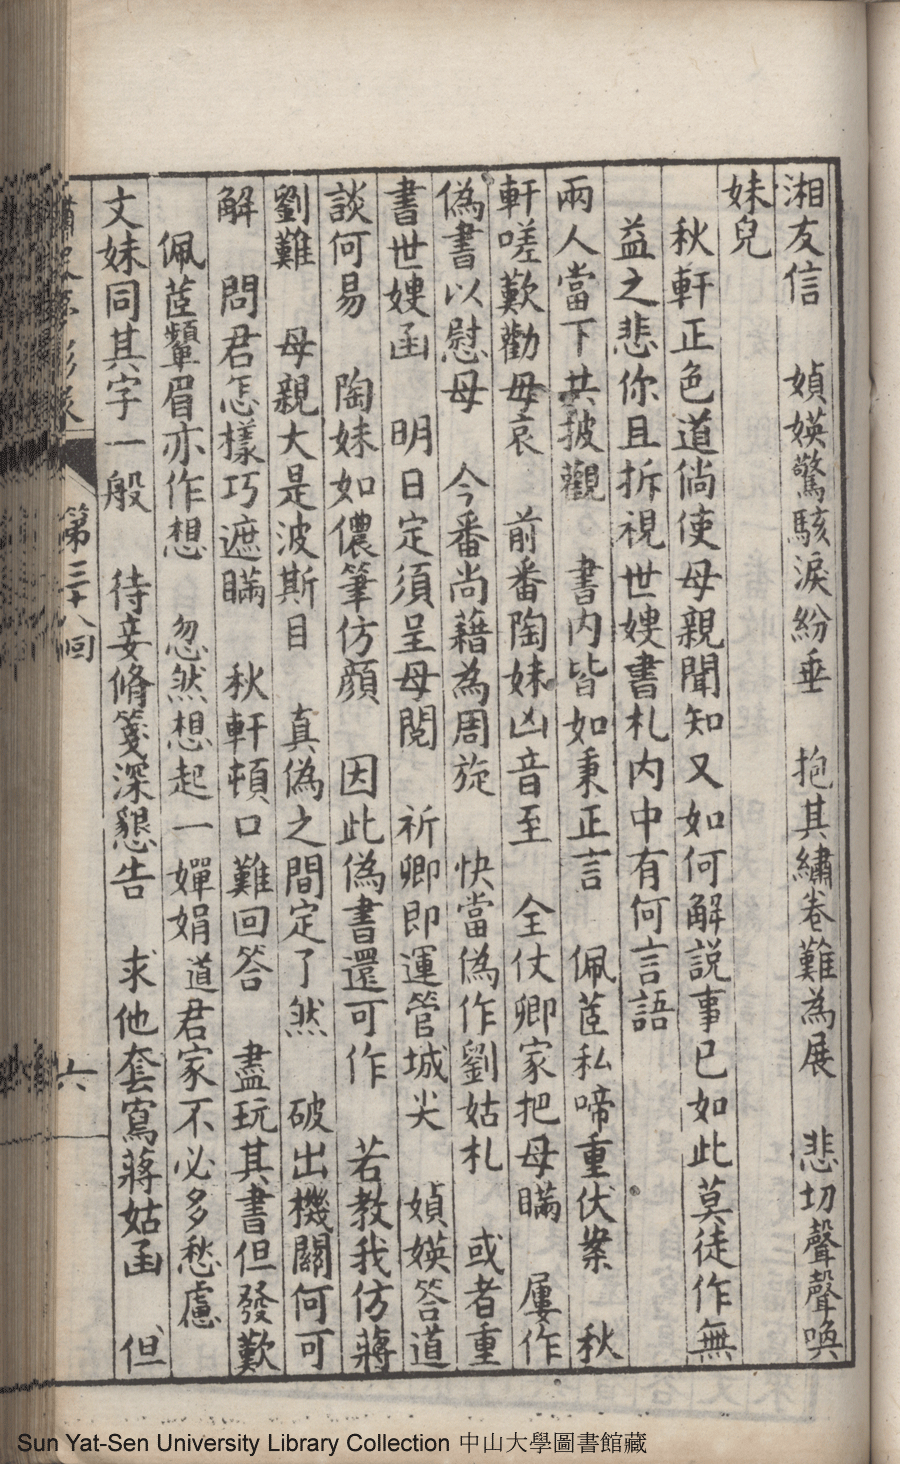 湘友信　媜媖驚駭淚紛垂　抱其繡卷難為展　悲切聲聲喚
妹兒
秋軒正色道倘使母親聞知又如何解説事已如此莫徒作無
益之悲你且拆視世嫂書札内中有何言語
兩人當下共披觀　書内皆如秉正言　佩茝私啼重伏案　秋
軒嗟歎勸毋哀　前番陶妹凶音至　全仗卿家把母瞞　屢作
偽書以慰母　今番尚藉為周旋　快當偽作劉姑札　或者重
書世嫂函　明日定須呈母閱　祈卿即運管城尖　媜媖答道
談何易　陶妹如儂筆仿顔　因此偽書還可作　若教我仿蔣
劉難　母親大是波斯目　真偽之間定了然　破出機關何可
解　問君怎樣巧遮瞞　秋軒頓口難回答　盡玩其書但發歎
佩茝顰眉亦作想　忽然想起一嬋娟　道君家不必多愁慮
文妹同其字一般　待妾脩箋深懇告　求他套寫蔣姑函　但
第三十八回
六
Sun Yat-Sen University Library Collection 中山大學圖書館藏